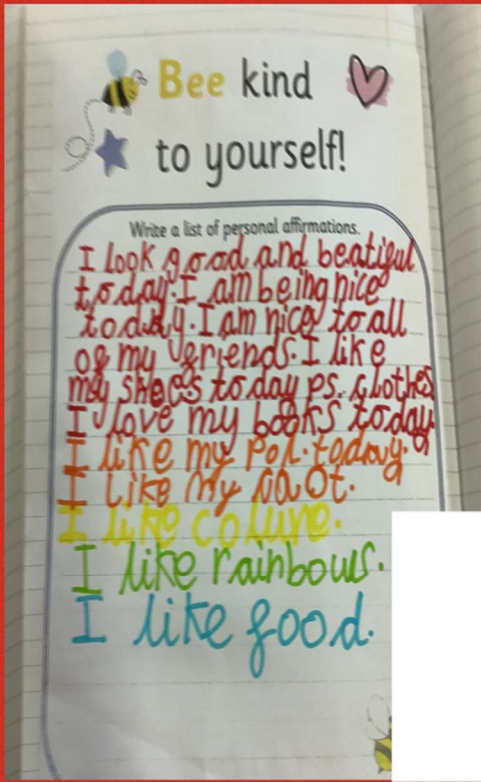 Bee kind
to yourself!
Write a list of personal affirmations.
I look good and beatiful
today. I am being nice
today. I am nice to all
of my friends. I like
my shoes today ps. clothes
I love my books today.
I like my today.
I like my
I like
I like rainbows.
I like food.